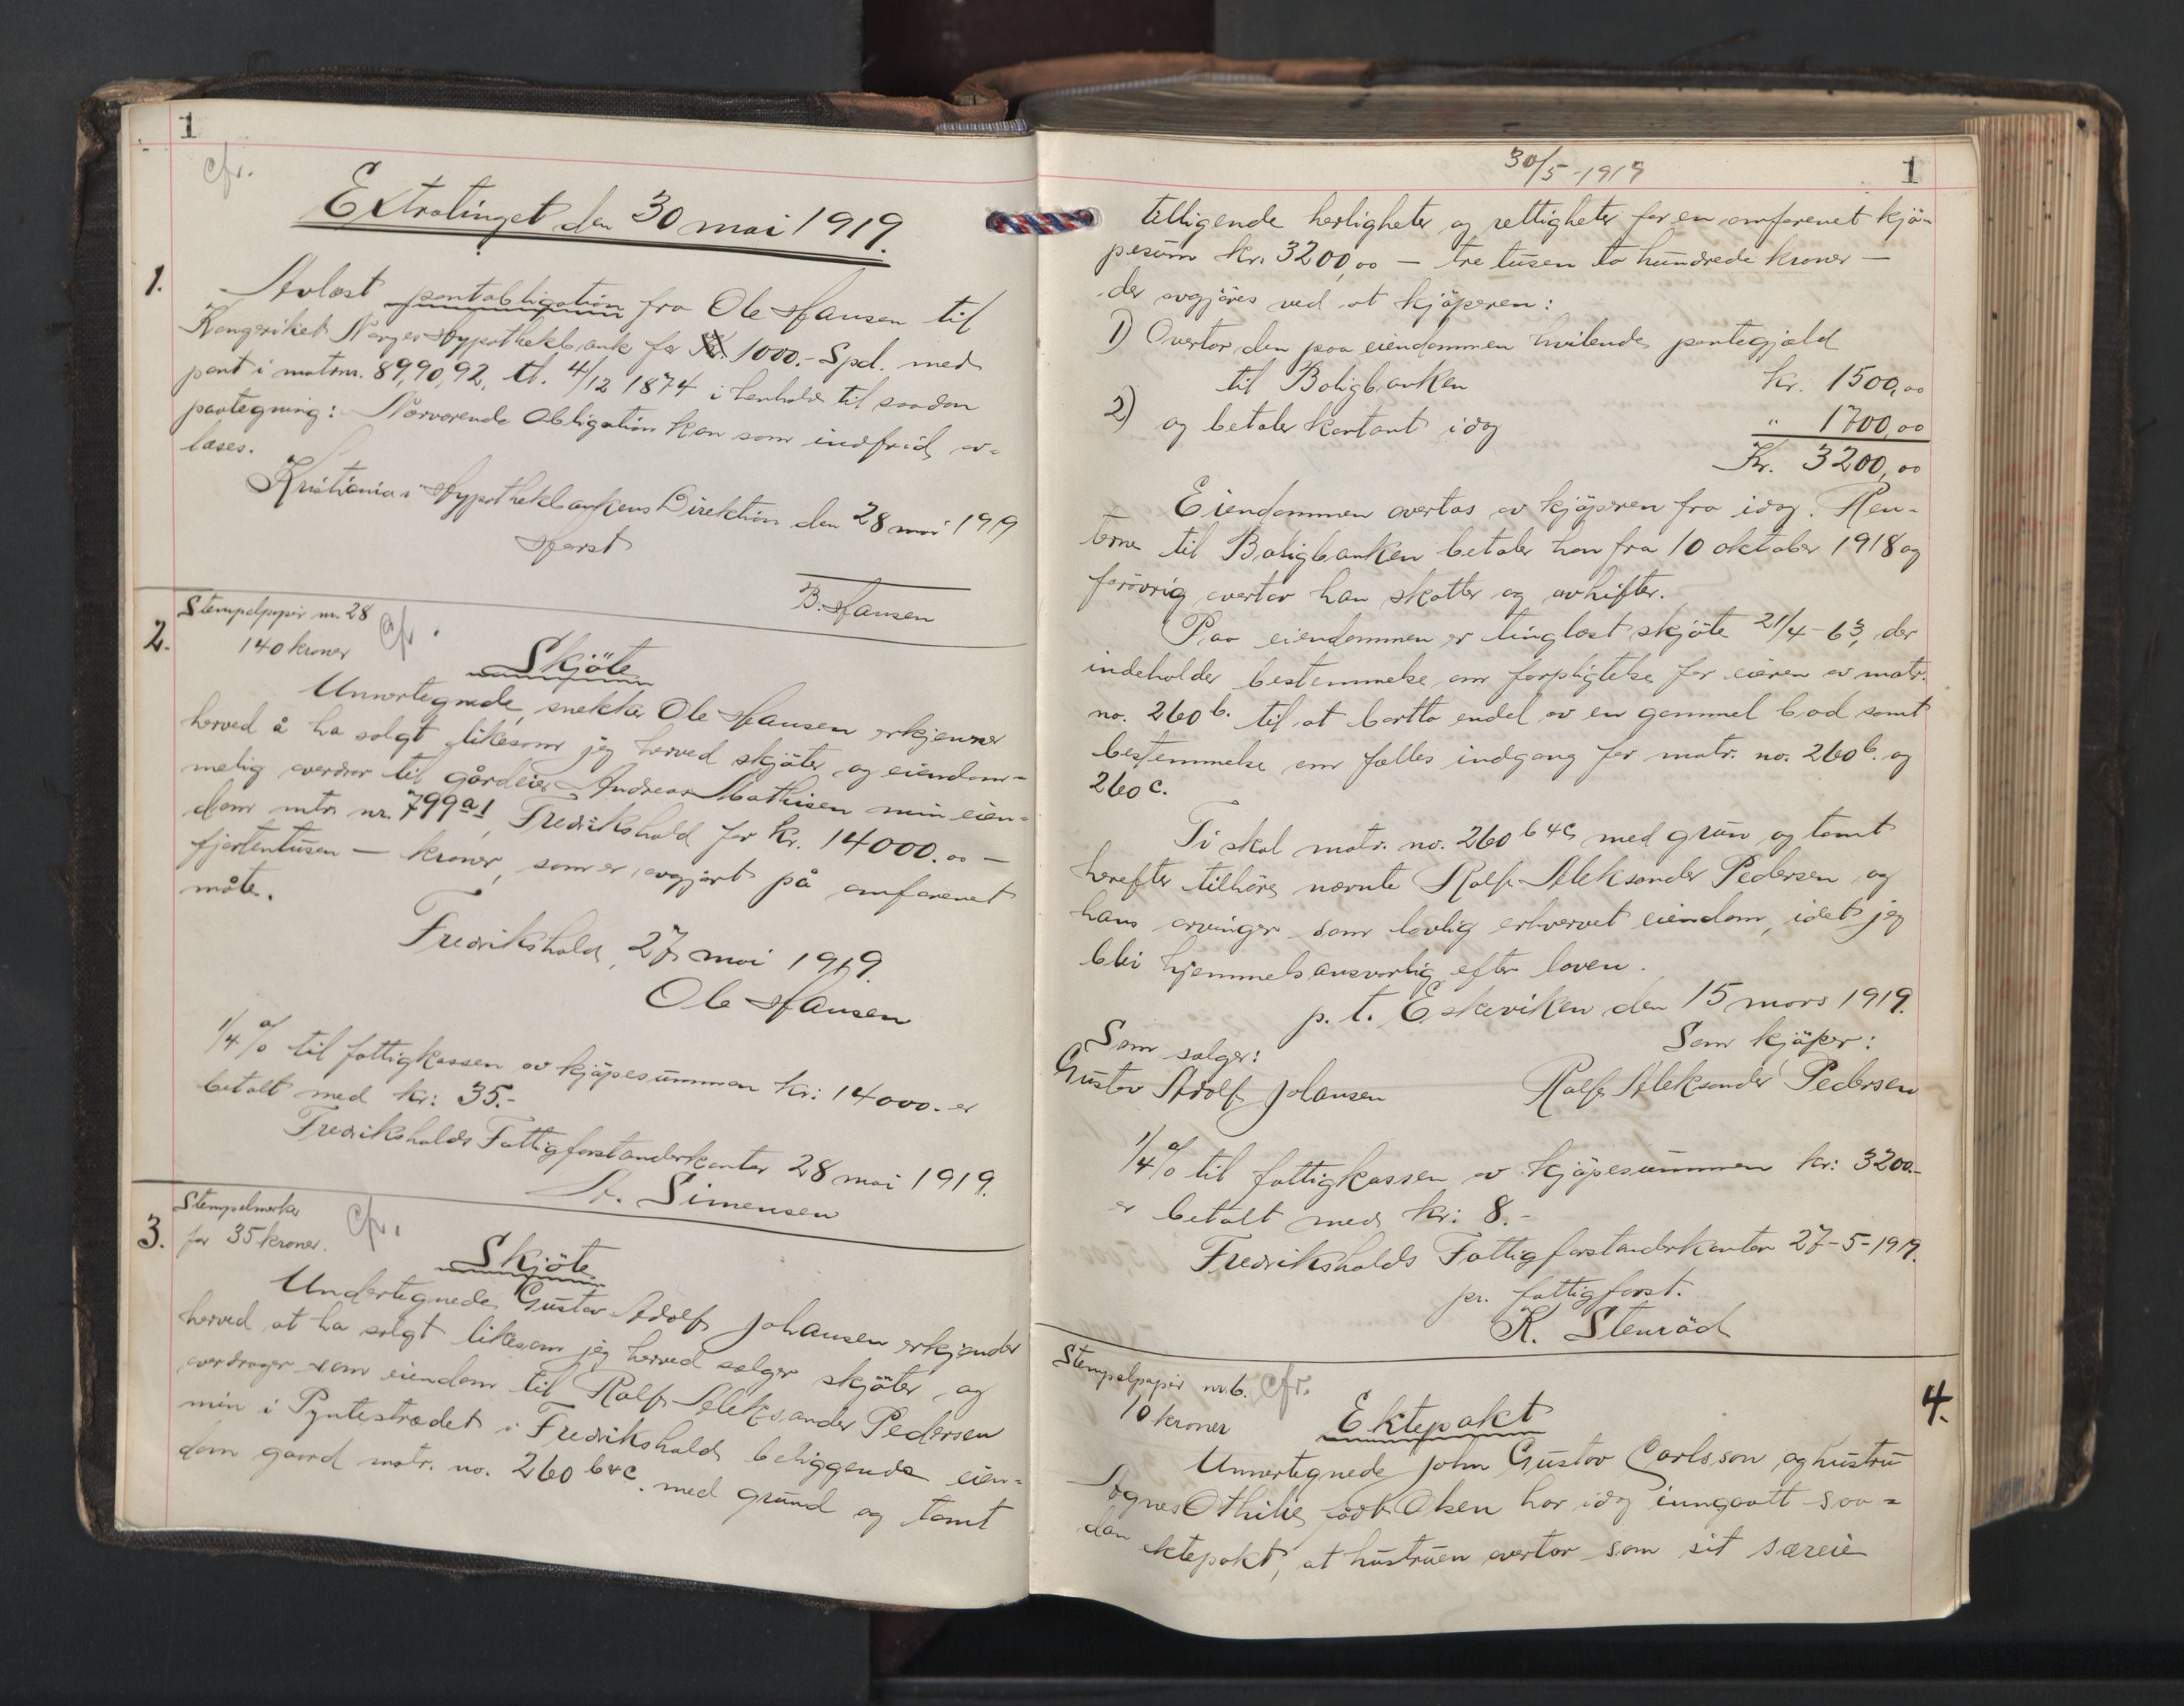 1
cfr.
Extratinget den 30 mai 1919.
1.
Avlæst pantobligation fra Ole Hansen til
Kongeriket Norges Hypothekbank for Kr. 1000.- Spd. med
pant i matrnr. 89, 90, 92, tl. 4/12 1874 i henhold til saadan
paategning: Nærværende Obligation kan som indfriet av-
læses.
Kristiania Hypothekbankens Direktion den 28 mai 1919
Horst
B. Hansen
2.
Stempelpapir nr. 28
140 kroner
Cfr.
Skjöte
Unnertegnede, snekker Ole Hansen erkjenner
herved å ha solgt likesom jeg herved skjöter og eiendom-
melig overdrar til gårdeier Andreas Mathisen min eien-
dom mtr. nr. 799 a1, Fredrikshald for kr. 14000.00 —
fjortentusen — kroner, som er avgjort på omforenet
måte.
Fredrikshald, 27 mai 1919.
Ole Hansen
1/4 % til fattigkassen av kjöpesummen kr: 14000.- er
betalt med kr: 35.-
Fredrikshalds Fattigforstanderkontor 28 mai 1919.
St. Simensen
3.
Stempelmerker
for 35 kroner.
Cfr.
Skjöte
Undertegnede Gustav Adolf Johansen erkjender
herved at ha solgt likesom jeg herved sælger skjöter og
overdrager som eiendom til Rolf Aleksander Pedersen
min i Pyntestrædet i Fredrikshald beliggende eien-
dom gaard matr. no. 260 b&c. med grund og tomt
30/5-1919
1
tilligende herligheter og rettigheter for en omforenet kjö-
pesum kr. 3200,00 — tre tusen to hundrede kroner —
der avgjöres ved at kjöperen:
1) Overtar den paa eiendommen hvilende pantegjæld
til Boligbanken kr. 1500,00
2) og betaler kontant idag " 1700,00
Kr. 3200,00
Eiendommen overtas av kjöperen fra idag. Ren-
terne til Boligbanken betaler han fra 10 oktober 1918 og
forövrig overtar han skatter og avhifter.
Paa eiendommen er tinglæst skjöte 21/4-63, der
indeholder bestemmelse om forpligtelse for eieren av matr.
no. 260 b. til at bortta endel av en gammel bod samt
bestemmelse om fælles indgang for matr. no. 260 b. og
260 c.
Ti skal matr. no. 260 b&c med grun og tomt
herefter tilhöre nævnte Rolf Aleksander Pedersen og
hans arvinger som lovlig erhvervet eiendom, idet jeg
blir hjemmelsansvarlig efter loven.
p. t. Eskeviken den 15 mars 1919.
Som sælger: Som kjöper:
Gustav Adolf Johansen Rolf Aleksander Pedersen
1/4 % til fattigkassen av kjöpesummen kr: 3200.-
er betalt med kr: 8.-
Fredrikshalds Fattigforstanderkontor 27-5-1919.
pr. fattigforst.
K. Stenröd
Stempelpapir nr. 6.
10 kroner
Cfr.
4.
Ektepakt
Unnertegnede John Gustav Carlsson og hustru
Agnes Othilie född Olsen har idag inngaatt saa-
dan ektepakt, at hustruen overtar som sit særeie